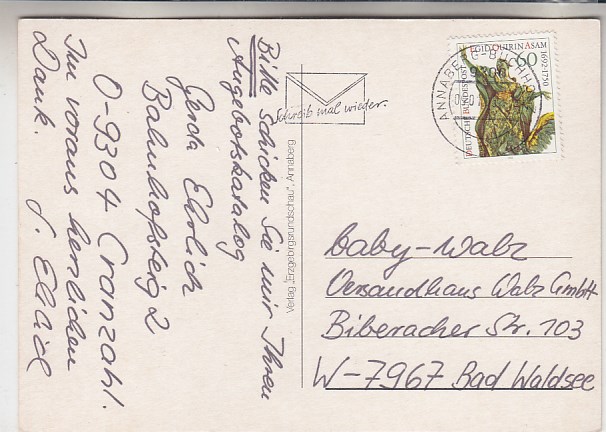 Bitte schicken Sie mir Ihren
Angebotskatalog
Gerda Ehrlich
Bahnhofsteig 2
O-9304 Cranzahl.
Im voraus herzlichen
Dank.
G. Ehrlich
Verlag „Erzgebirgsrundschau“, Annaberg
Schreib mal wieder.
ANNABERG-BUCHHOLZ
9300
EGID QUIRIN ASAM
1692-1750
60
DEUTSCHE BUNDESPOST
baby-walz
Versandhaus Walz GmbH
Biberacher Str. 103
W-7967 Bad Waldsee